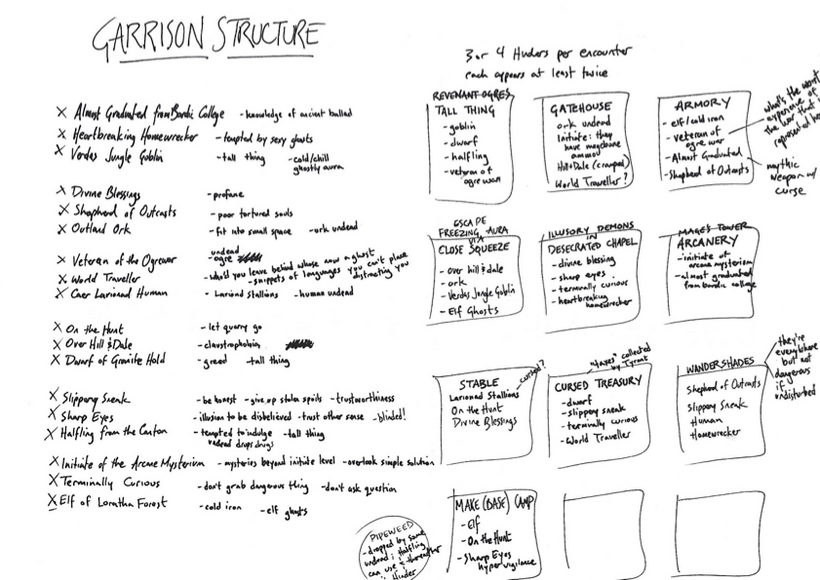 GARRISON STRUCTURE
3 or 4 Hinders per encounter
each appears at least twice
X Almost Graduated from Bardic College - knowledge of ancient ballad
X Heartbreaking Homewrecker - tempted by sexy ghosts
X Verdes Jungle Goblin - tall thing - cold/chill
ghostly aura
X Divine Blessings - profane
X Shepherd of Outcasts - poor tortured souls
X Outland Ork - fit into small space - ork undead
X Veteran of the Ogrewar - undead ogre
X World Traveller - who'd you leave behind whose now a ghost
- snippets of languages you can't place
distracting you
X Caer Larional Human - Larional Stallions - human undead
X On the Hunt - let quarry go
X Over Hill & Dale - claustrophobia
X Dwarf of Granite Hold - greed - tall thing
X Slippery Sneak - be honest - give up stolen spoils - trustworthiness
X Sharp Eyes - illusion to be disbelieved - trust other sense - blinded!
X Halfling from the Canton - tempted to indulge - tall thing
undead drops drugs
X Initiate of the Arcane Mysterium - mysteries beyond initiate level - overlook simple solution
X Terminally Curious - don't grab dangerous thing - don't ask question
X Elf of Loratha Forest - cold iron - elf ghosts
REVENANT OGRES
TALL THING
- goblin
- dwarf
- halfling
- veteran of
ogre war
GATEHOUSE
ork undead
initiate: they
have mageBane
ammo
Hill & Dale (cramped)
World Traveller?
ARMORY
- elf/cold iron
- veteran of
ogre war
- Almost Graduated
- Shepherd of Outcasts
what's the worst
experience of
the war that is
represented here
mythic
weapon w/
curse
ESCAPE
FREEZING AURA
VIA
CLOSE SQUEEZE
- over hill & dale
- ork
- Verdes Jungle Goblin
- Elf Ghosts
ILLUSORY DEMONS
IN
DESECRATED CHAPEL
- divine blessing
- sharp eyes
- terminally curious
- heartbreaking
homewrecker
MAGE'S TOWER
ARCANERY
- initiate of
arcane mysterium
- almost graduated
from bardic college
STABLE
cursed?
Larional Stallions
On the Hunt
Divine Blessings
"taxes" collected
by Tyrant
CURSED TREASURY
- dwarf
- slippery sneak
- terminally curious
- World Traveller
WANDERSHADES
Shepherd of Outcasts
Slippery Sneak
Human
Homewrecker
they're
everywhere
but not
dangerous
if
undisturbed
MAKE (BASE) CAMP
- Elf
- On the Hunt
- Sharp Eyes
hypervigilance
PIPEWEED
- dropped by some
undead; Halfling
can use
Hinder